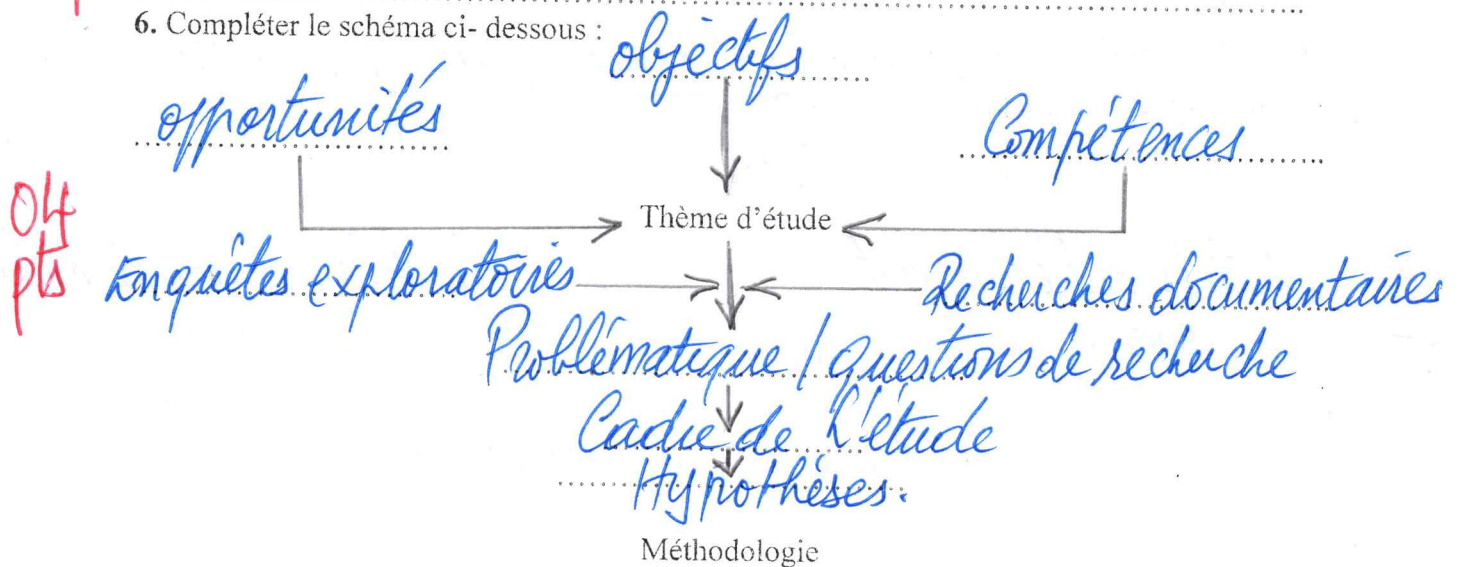 6. Compléter le schéma ci- dessous :
objectifs
opportunités
Compétences
04
pts
Thème d'étude
Enquêtes exploratoires
Recherches documentaires
Problématique / questions de recherche
Cadre de L'étude
Hypothèses.
Méthodologie